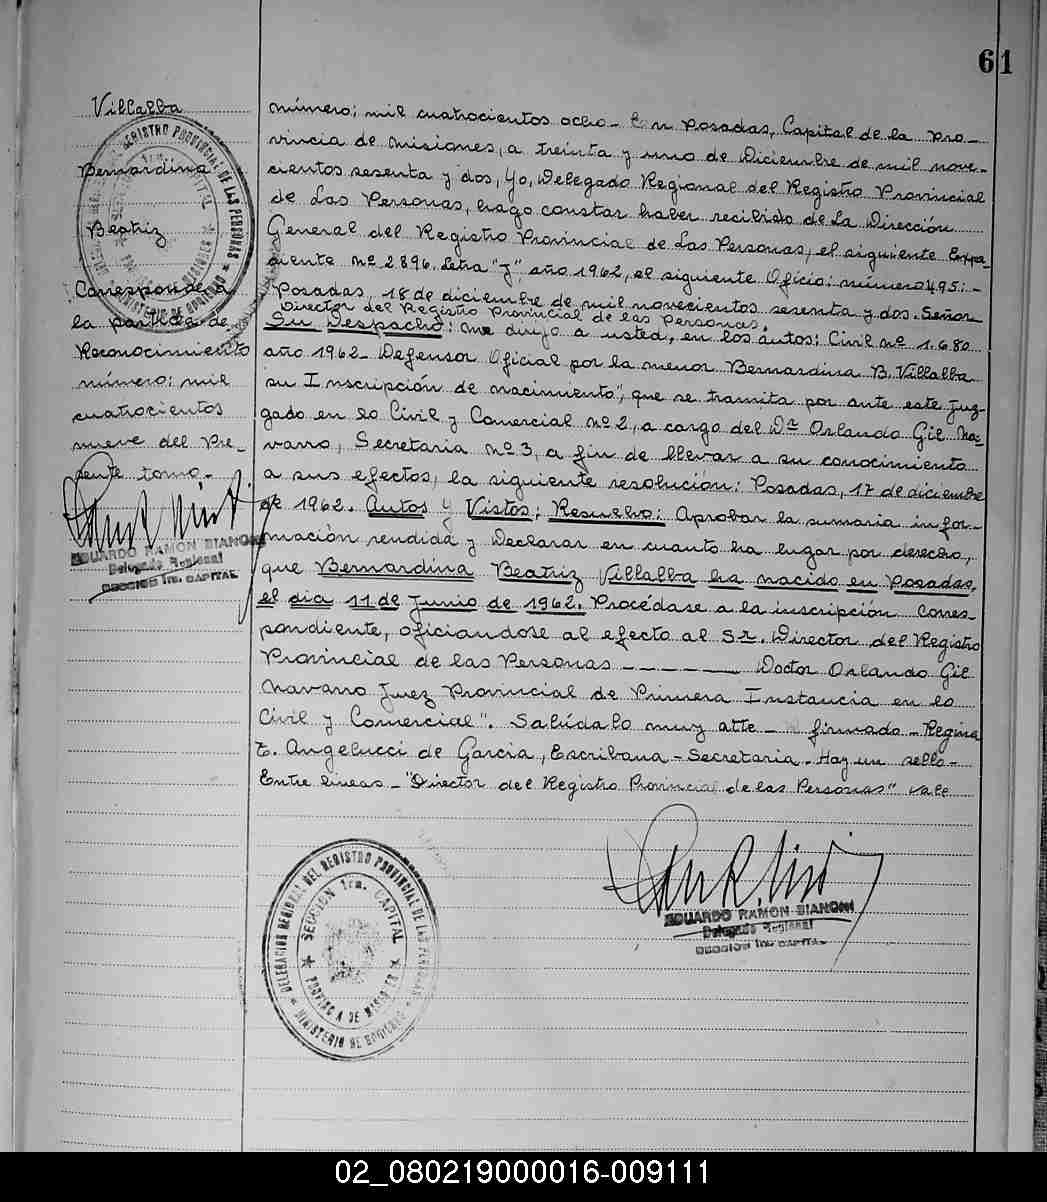 61
Villalba
Bernardina
Beatriz
Corresponde a
la partida de
Reconocimiento
número: mil
cuatrocientos
nueve del Pre-
sente tomo.-
EDUARDO RAMON BIANCHI
Delegado Regional
SECCION 1ra. CAPITAL
número; mil cuatrocientos ocho- En Posadas, Capital de la Pro-
vincia de Misiones, a treinta y uno de Diciembre de mil nove-
cientos sesenta y dos, Yo, Delegado Regional del Registro Provincial
de Las Personas, hago constar haber recibido de La Dirección
General del Registro Provincial de Las Personas, el siguiente Expe-
diente nº 2896. Letra "J" año 1962, el siguiente Oficio: número 495:-
Posadas, 18 de diciembre de mil novecientos sesenta y dos. Señor
Director del Registro Provincial de las Personas.
Su Despacho: me dirijo a usted, en los autos: Civil nº 1.680
año 1962- Defensor Oficial por la menor Bernardina B. Villalba
su Inscripción de nacimiento", que se tramita por ante este Juz-
gado en lo Civil y Comercial nº 2, a cargo del Dr. Orlando Gil Na-
varro, Secretaria nº 3, a fin de llevar a su conocimiento
a sus efectos, la siguiente resolución: Posadas, 17 de diciembre
de 1962. Autos y Vistos: Resuelvo: Aprobar la sumaria infor-
mación rendida y Declarar en cuanto ha lugar por derecho,
que Bernardina Beatriz Villalba ha nacido en Posadas,
el dia 11 de Junio de 1962. Procédase a la inscripción Corres-
pondiente, oficiandose al efecto al Sr. Director del Registro
Provincial de las Personas ------ Doctor Orlando Gil
Navarro Juez Provincial de Primera Instancia en lo
Civil y Comercial". Salúdalo muy atte - firmado - Regina
E. Angelucci de Garcia, Escribana - Secretaria. Hay un sello-
Entre lineas - "Director del Registro Provincial de las Personas" Vale
EDUARDO RAMON BIANCHI
Delegado Regional
SECCION 1ra. CAPITAL
DELEGACION REGIONAL DEL REGISTRO PROVINCIAL DE LAS PERSONAS
SECCION 1ra. CAPITAL
PROVINCIA DE MISIONES
MINISTERIO DE GOBIERNO
02_080219000016-009111